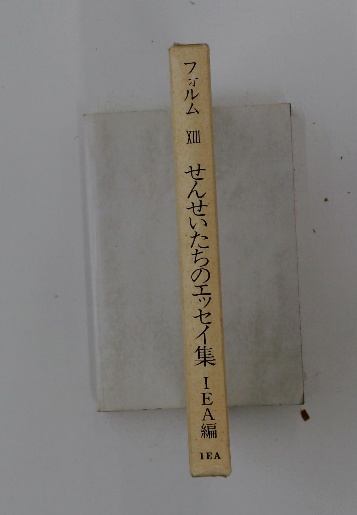 フォルム XIII せんせいたちのエッセイ集 IEA編
IEA